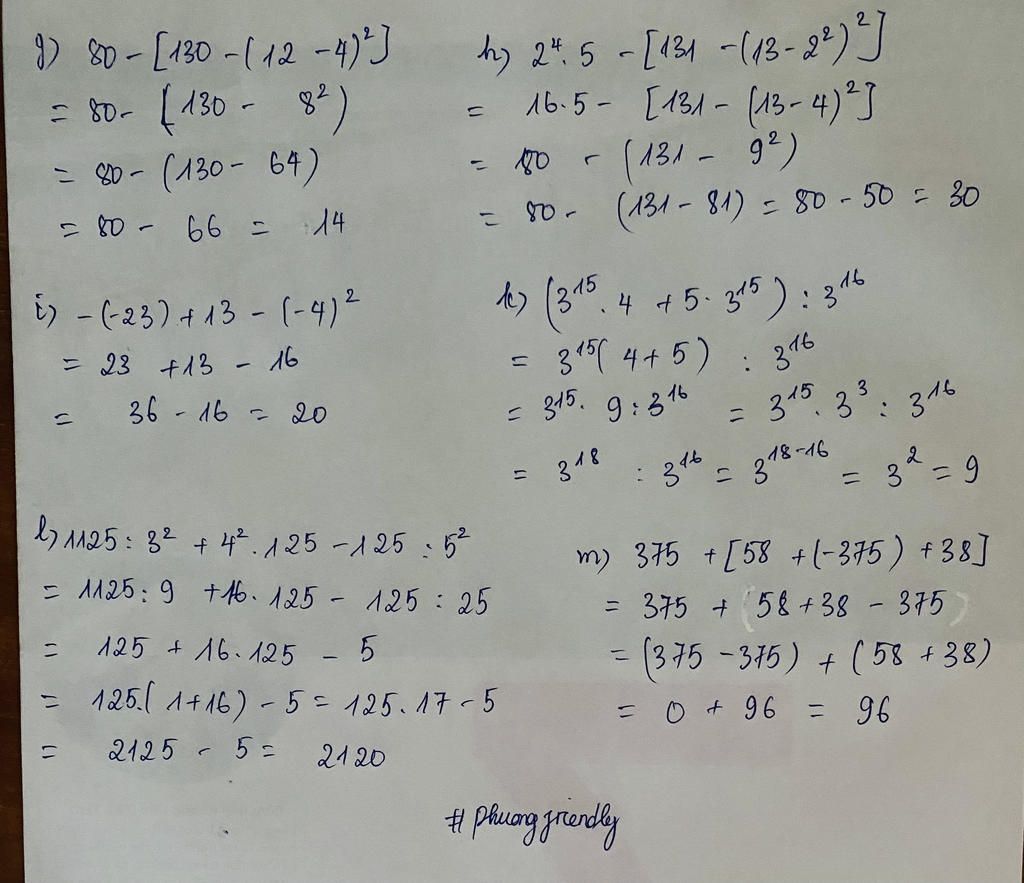 g) 80 - [130 - (12 - 4)²]
= 80 - [130 - 8²)
= 80 - (130 - 64)
= 80 - 66 = 14
h) 2⁴. 5 - [131 - (13 - 2²)²]
= 16.5 - [131 - (13 - 4)²]
= 80 - (131 - 9²)
= 80 - (131 - 81) = 80 - 50 = 30
i) -(-23) + 13 - (-4)²
= 23 + 13 - 16
= 36 - 16 = 20
k) (3¹⁵. 4 + 5. 3¹⁵) : 3¹⁶
= 3¹⁵( 4 + 5) : 3¹⁶
= 3¹⁵. 9 : 3¹⁶ = 3¹⁵. 3³ : 3¹⁶
= 3¹⁸ : 3¹⁶ = 3¹⁸⁻¹⁶ = 3² = 9
l) 1125 : 3² + 4². 125 - 125 : 5²
= 1125 : 9 + 16. 125 - 125 : 25
= 125 + 16. 125 - 5
= 125.( 1 + 16) - 5 = 125. 17 - 5
= 2125 - 5 = 2120
m) 375 + [58 + (-375) + 38]
= 375 + (58 + 38 - 375)
= (375 - 375) + (58 + 38)
= 0 + 96 = 96
# phuong friendly